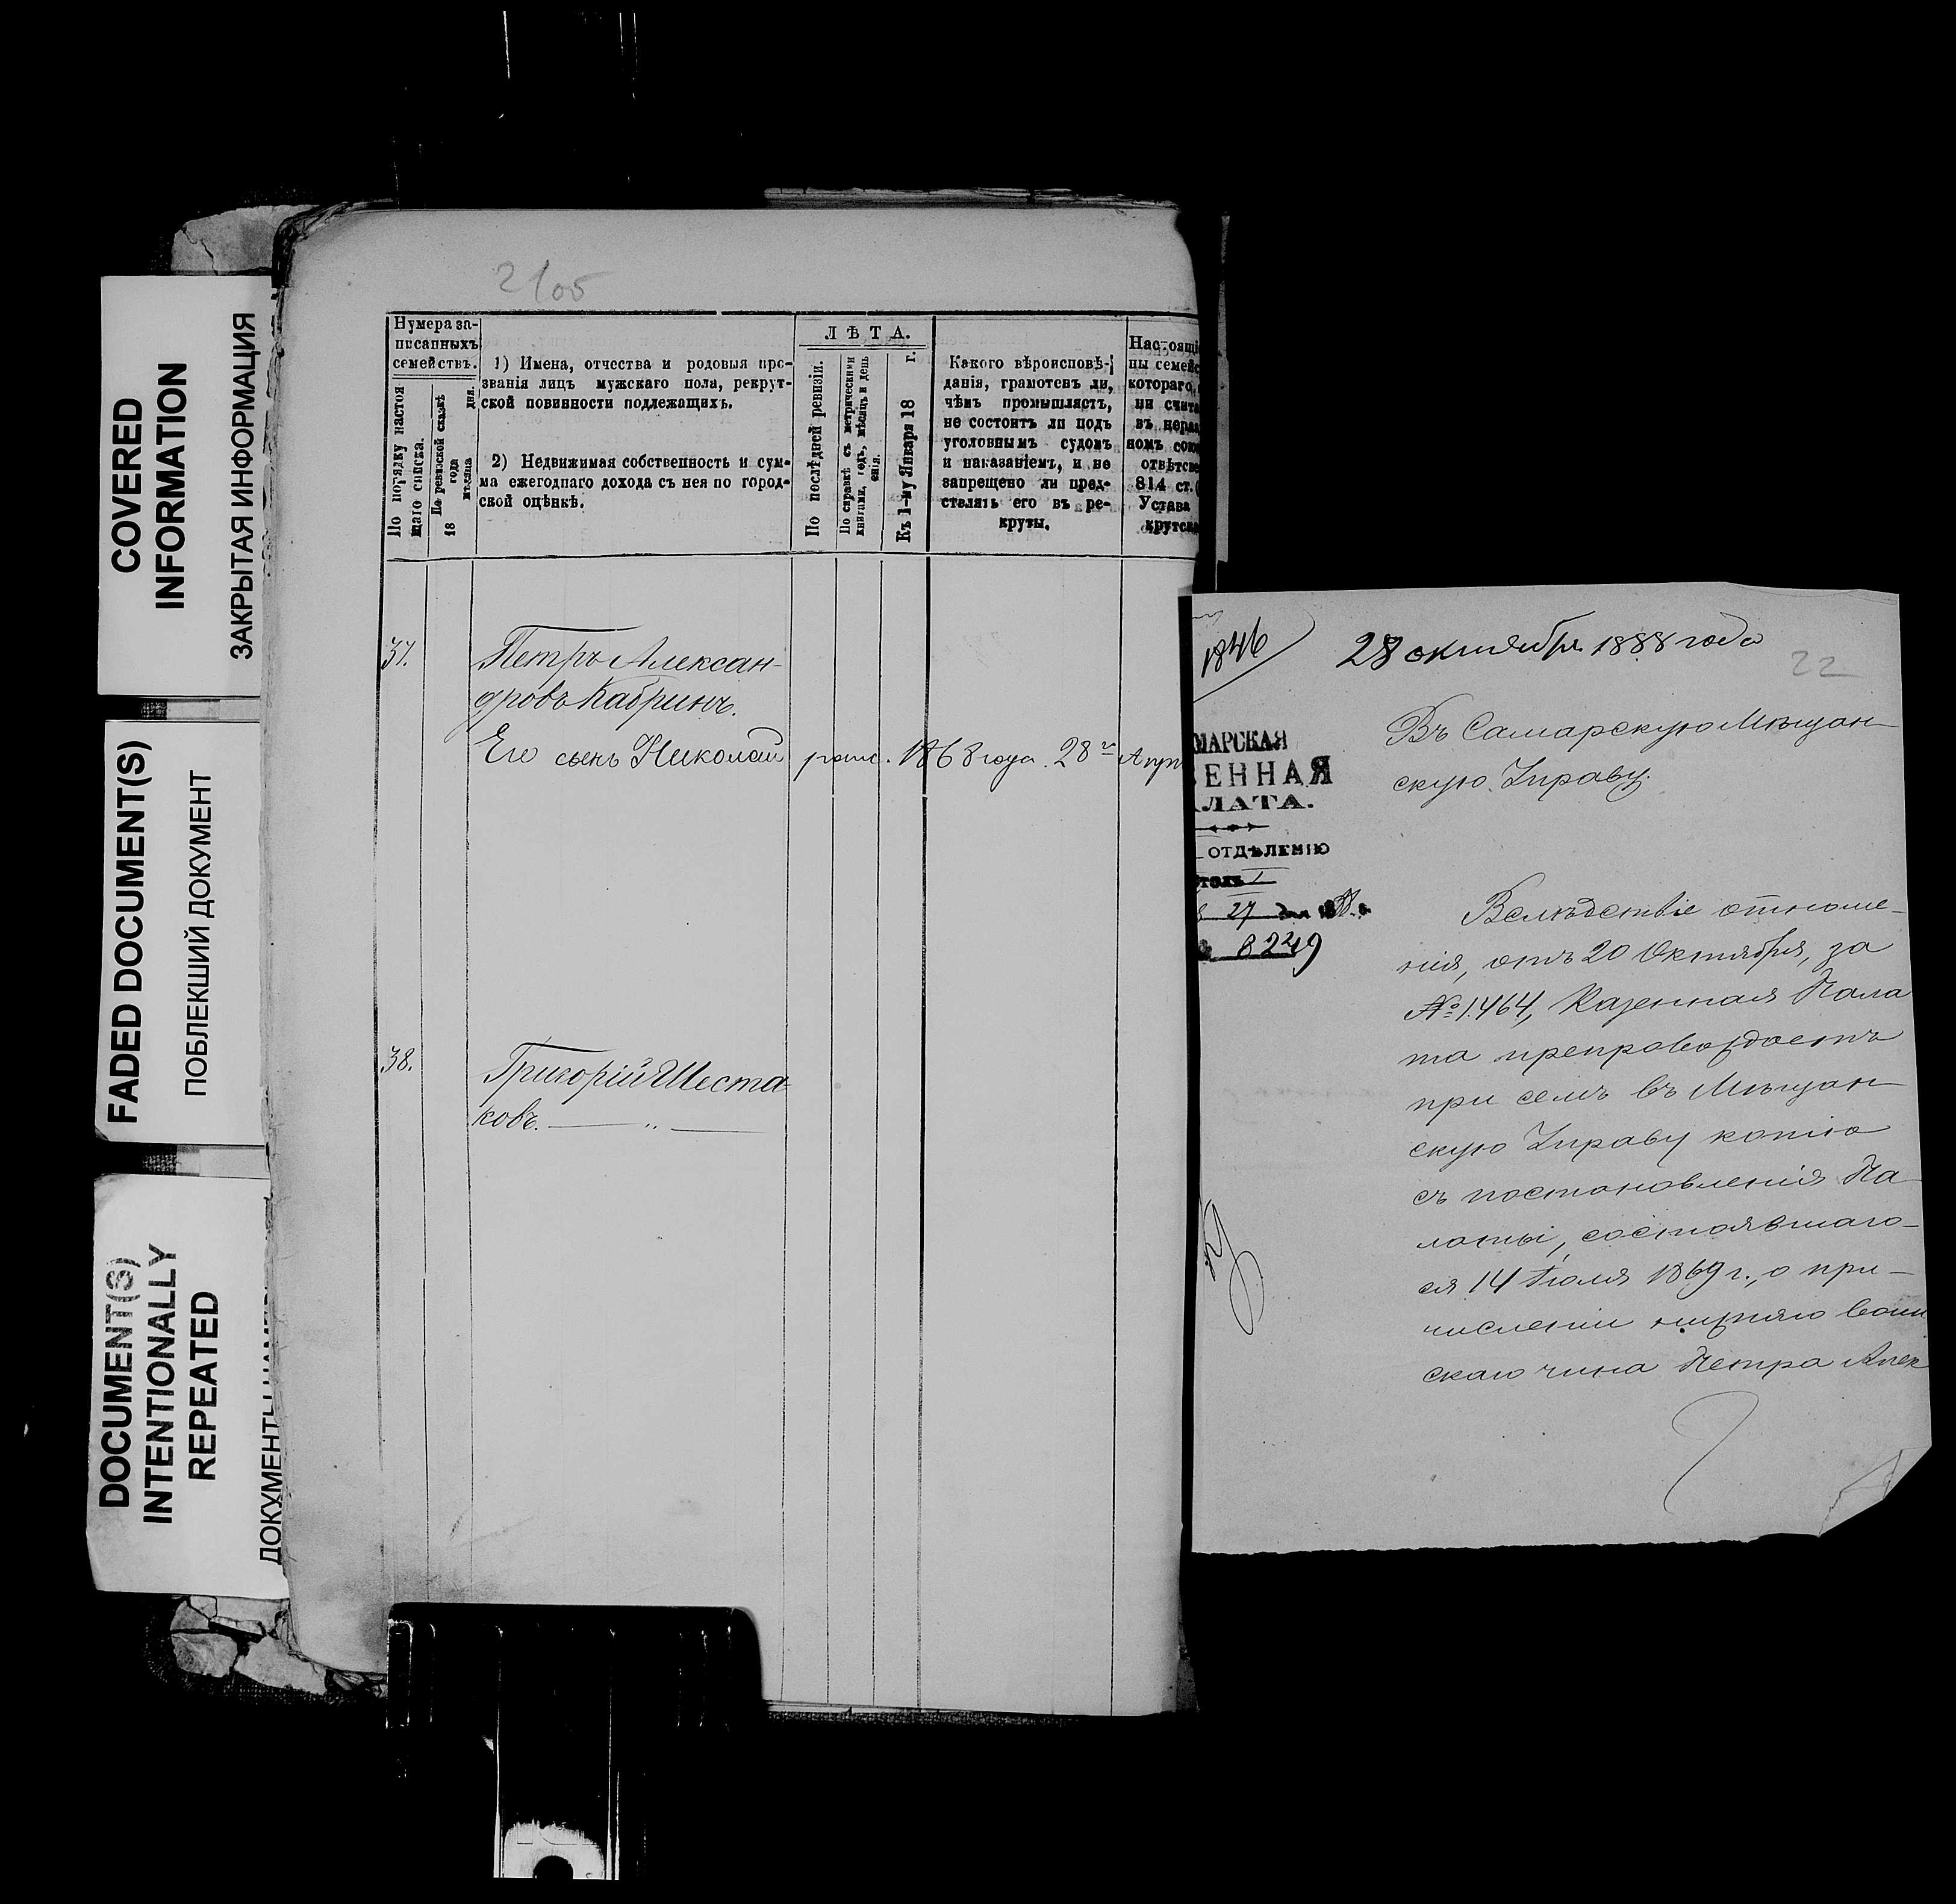 COVERED
INFORMATION
ЗАКРЫТАЯ ИНФОРМАЦИЯ
FADED DOCUMENT(S)
ПОБЛЕКШИЙ ДОКУМЕНТ
DOCUMENT(S)
INTENTIONALLY
REPEATED
ДОКУМЕНТЫ
Нумера за-
писанныхъ
семействъ.
По порядку настоя
щаго списка.
По ревизской сказкѣ
18 года
мѣсяца дня.
1) Имена, отчества и родовыя про-
званія лицъ мужскаго пола, рекрут-
ской повинности подлежащихъ.
2) Недвижимая собственность и сум-
ма ежегоднаго дохода съ нея по город-
ской оцѣнкѣ.
ЛѢТА.
По послѣдней ревизіи.
По справкѣ съ метрическими
книгами, годъ, мѣсяцъ и день
Къ 1-му Января 18 г.
Какого вѣроисповѣ-
данія, грамотенъ ли,
чѣмъ промышляетъ,
не состоитъ ли подъ
уголовнымъ судомъ
и наказаніемъ, и не
запрещено ли пред-
ставлять его въ ре-
круты.
Настоящі
ны семейс
котораго,
ни счита
въ нераз
номъ сою
отвѣтств
814 ст.
Устава
крутска
37.
Петръ Алексан-
дровъ Кабринъ.
Его сынъ Николай 1868 года 28 Апр
38.
Григорій Шеста-
ковъ.
1846
28 октября 1888 года
22
Въ Самарскую Мѣщан-
скую Управу.
МАРСКАЯ
ЕННАЯ
ЛАТА.
ОТДѢЛЕНІЮ
27 дня 1888 г.
8249
Вслѣдствіе отноше-
нія, отъ 20 Октября, за
№ 1464, Казенная Пала
та препровождаетъ
при семъ въ Мѣщан-
скую Управу копію
съ постановленія Па-
латы, состоявшаго-
ся 14 Іюля 1869 г., о при-
численіи нижняго воин
скаго чина Петра Алек